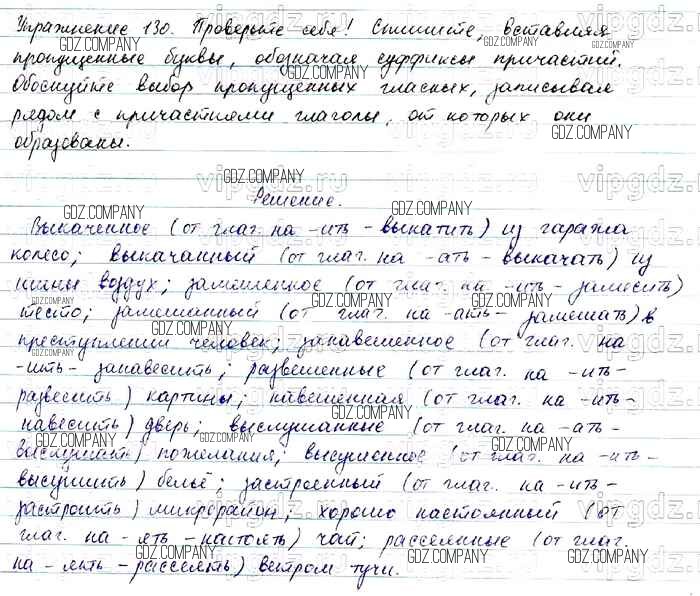 Упражнение 130. Проверьте себя! Спишите, вставляя
пропущенные буквы, обозначая суффиксы причастий.
Обоснуйте выбор пропущенных гласных, записывая
рядом с причастиями глаголы, от которых они
образованы.
Решение.
Выкаченное (от глаг. на -ить - выкатить) из гаража
колесо; выкачанный (от глаг. на -ать - выкачать) из
шины воздух; замешенное (от глаг. на -ить - замесить)
тесто; замешанный (от глаг. на -ать - замешать) в
преступлении человек; занавешенное (от глаг. на
-ить - занавесить; развешенные (от глаг. на -ить-
развесить) картины; навешенная (от глаг. на -ить-
навесить) дверь; выслушанные (от глаг. на -ать-
выслушать) пожелания; высушенное (от глаг. на -ить-
высушить) бельё; застроенный (от глаг. на -ить-
застроить) микрорайон; хорошо настоянный (от
глаг. на -ять - настоять) чай; рассеянные (от глаг.
на -ять - рассеять) ветром тучи.